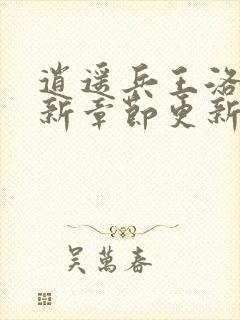 逍遥兵王洛
新章節更新
吴萬春